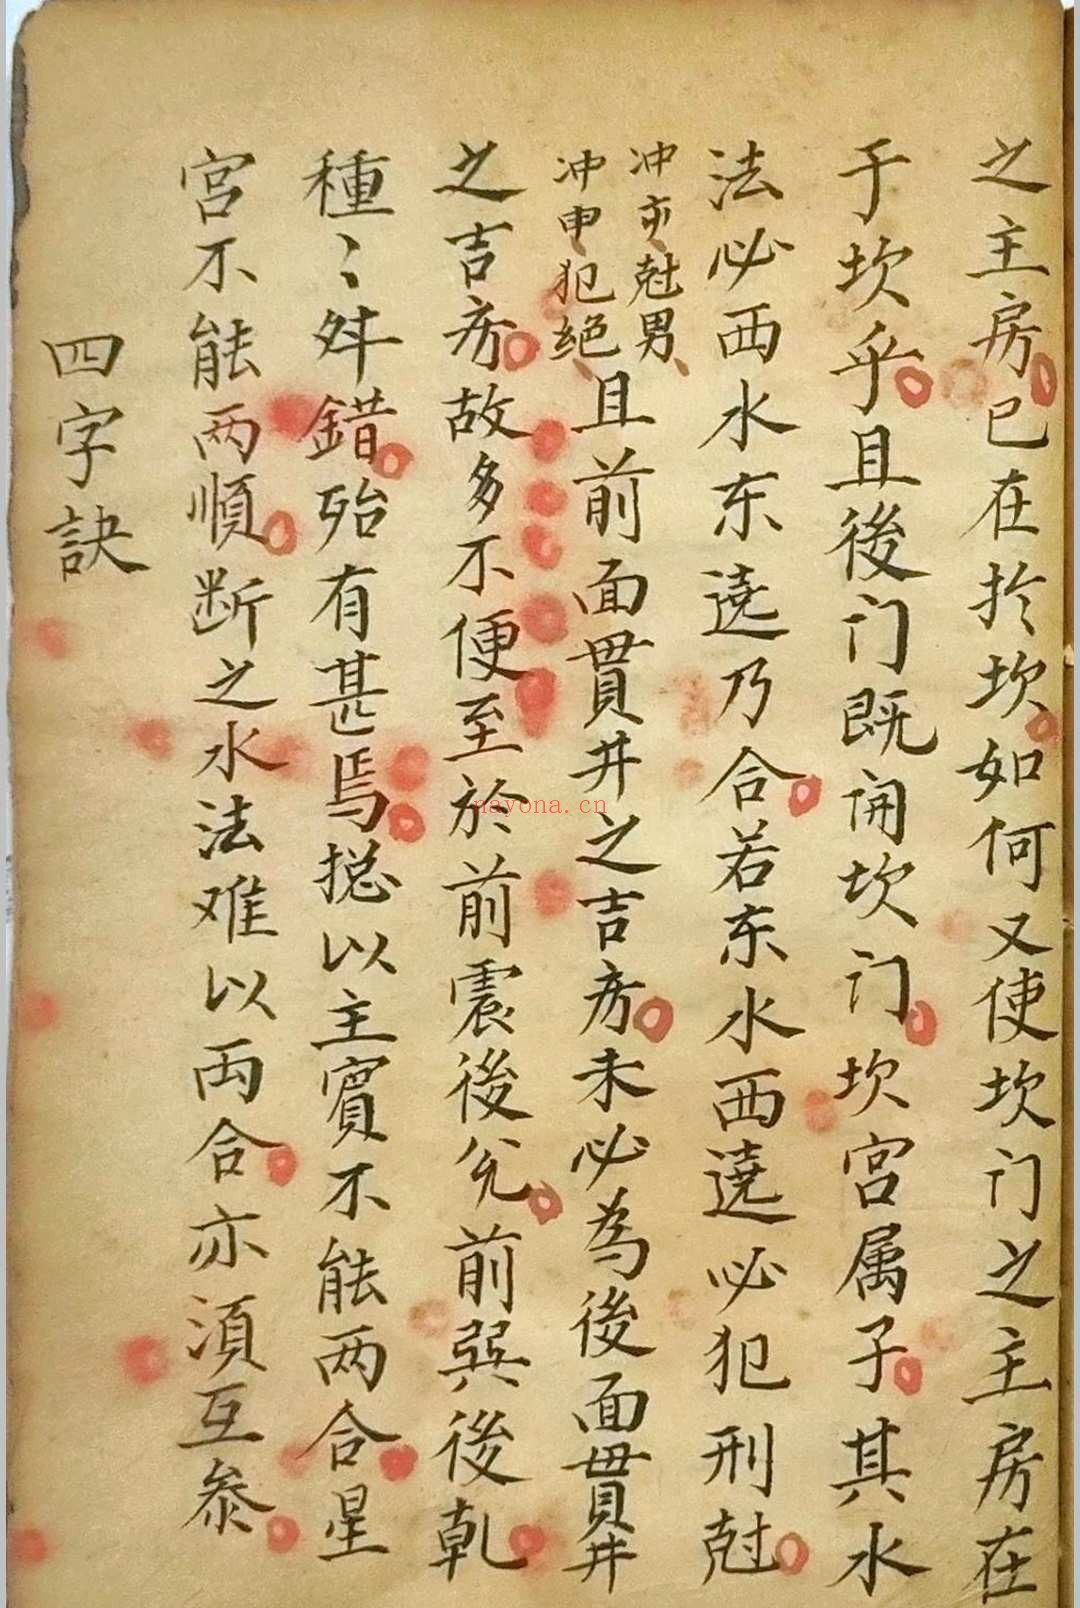 之主房已在於坎如何又使坎门之主房在
于坎乎且後门既开坎门坎宫属子其水
法必西水东遶乃合若东水西遶必犯刑尅
冲亥尅男
冲申犯绝
且前面貫井之吉房未必為後面貫井
之吉房故多不便至於前震後兌前巽後乾
種〻舛錯殆有甚焉揔以主賔不能两合星
宫不能两順断之水法难以両合亦須互叅
四字訣
nayona.cn